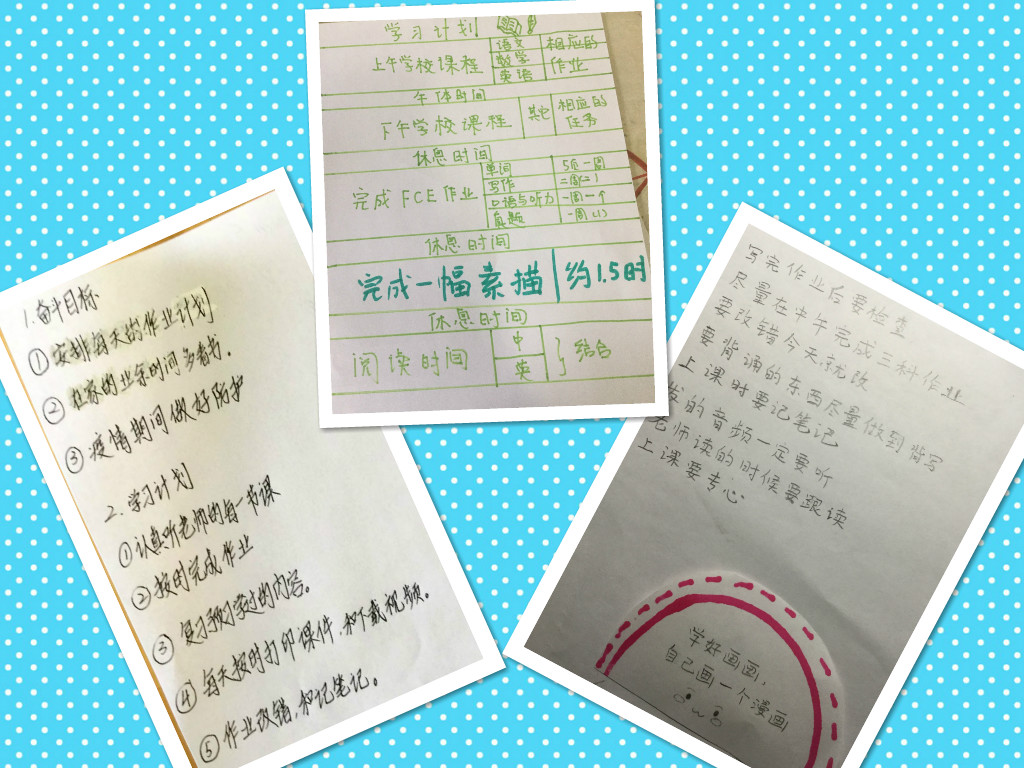 1.奋斗目标
① 安排每天的作业计划
② 在家的业余时间多看书.
③ 疫情期间做好防护
2.学习计划
① 认真听老师的每一节课
② 按时完成作业
③ 复习预习学过的内容。
④ 每天按时打印课件,和下载视频。
⑤ 作业改错,和记笔记。
学习计划
上午学校课程 语文 相应的
数学 作业
英语
午休时间
下午学校课程 其它 相应的
任务
休息时间
完成FCE作业 单词 5页一周
写作 二周(1)
口语与听力 一周一个
真题 一周(1)
休息时间
完成一幅素描 约1.5时
休息时间
阅读时间 中 结合
英
写完作业后要检查
尽量在中午完成三科作业
要改错今天就改
要背诵的东西尽量做到背写
上课时要记笔记
发的音频一定要听
老师读的时候要跟读
上课要专心
学好画画,
自己画一个漫画